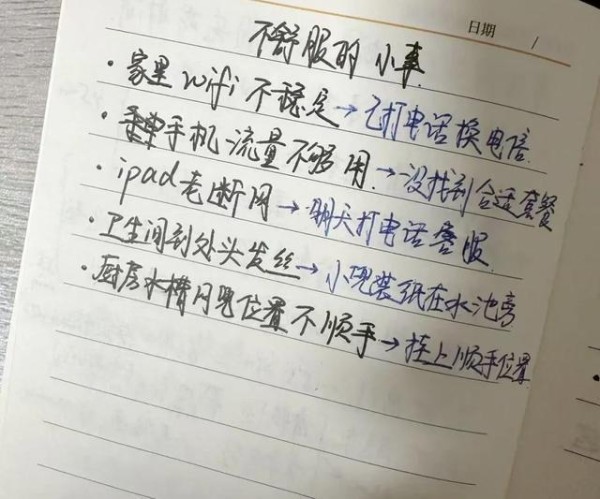 日期 /
不舒服的小事
·家里wifi不稳定→已打电话换电信.
·手机流量不够用.→没找到合适套餐
·ipad老断网→明天打电话客服.
·卫生间到处头发丝→小兜装纸在水池旁
·厨房水槽位置不顺手→挂上顺手位置